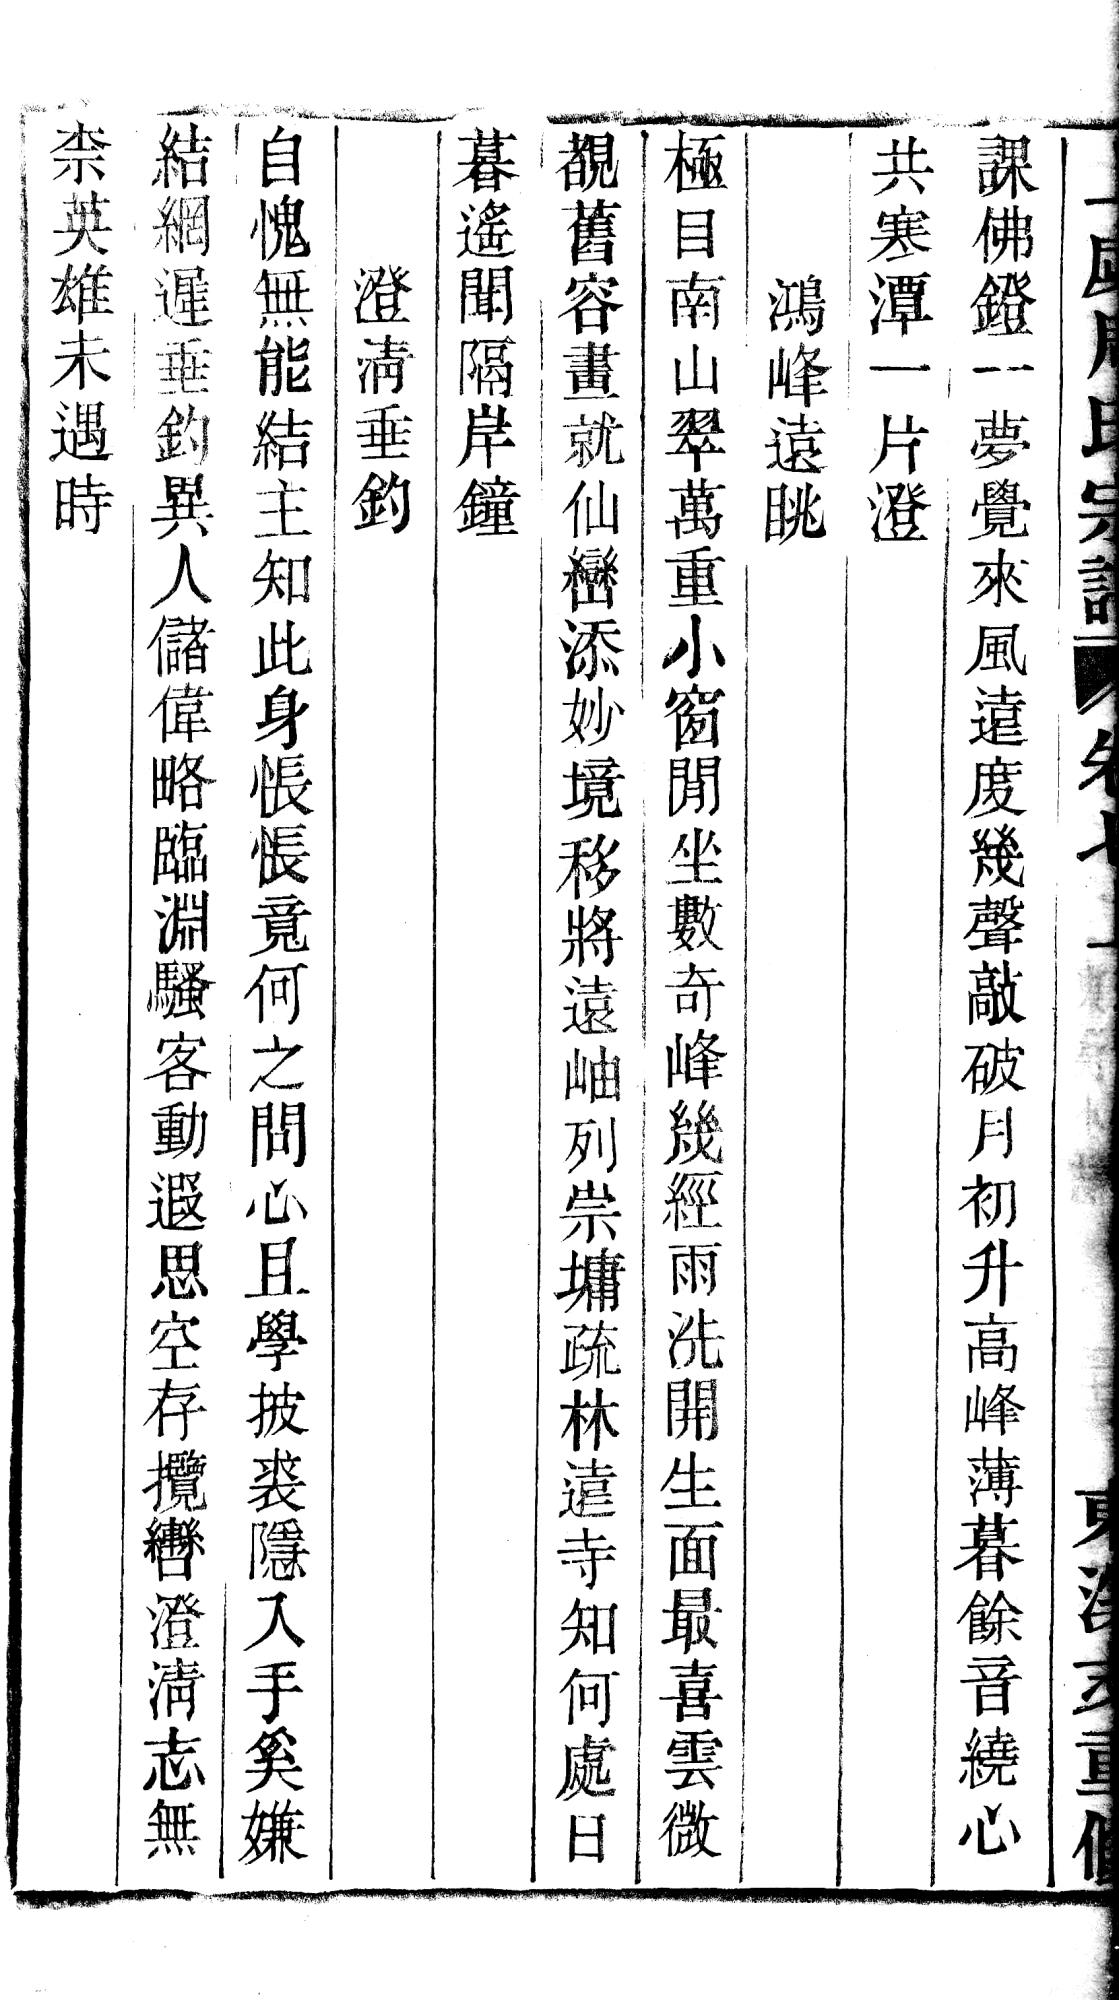 課佛鐙一夢覺來風遠度幾聲敲破月初升高峰薄暮餘音繞心
共寒潭一片澄
鴻峰遠眺
極目南山翠萬重小窗閒坐數奇峰幾經雨洗開生面最喜雲微
覩舊容畫就仙巒添妙境移將遠岫列崇墉疏林遠寺知何處日
暮遙聞隔岸鐘
澄清垂釣
自愧無能結主知此身悵悵竟何之問心且學披裘隱入手奚嫌
結網遲垂釣異人儲偉略臨淵騷客動遐思空存攬轡澄清志無
柰英雄未遇時